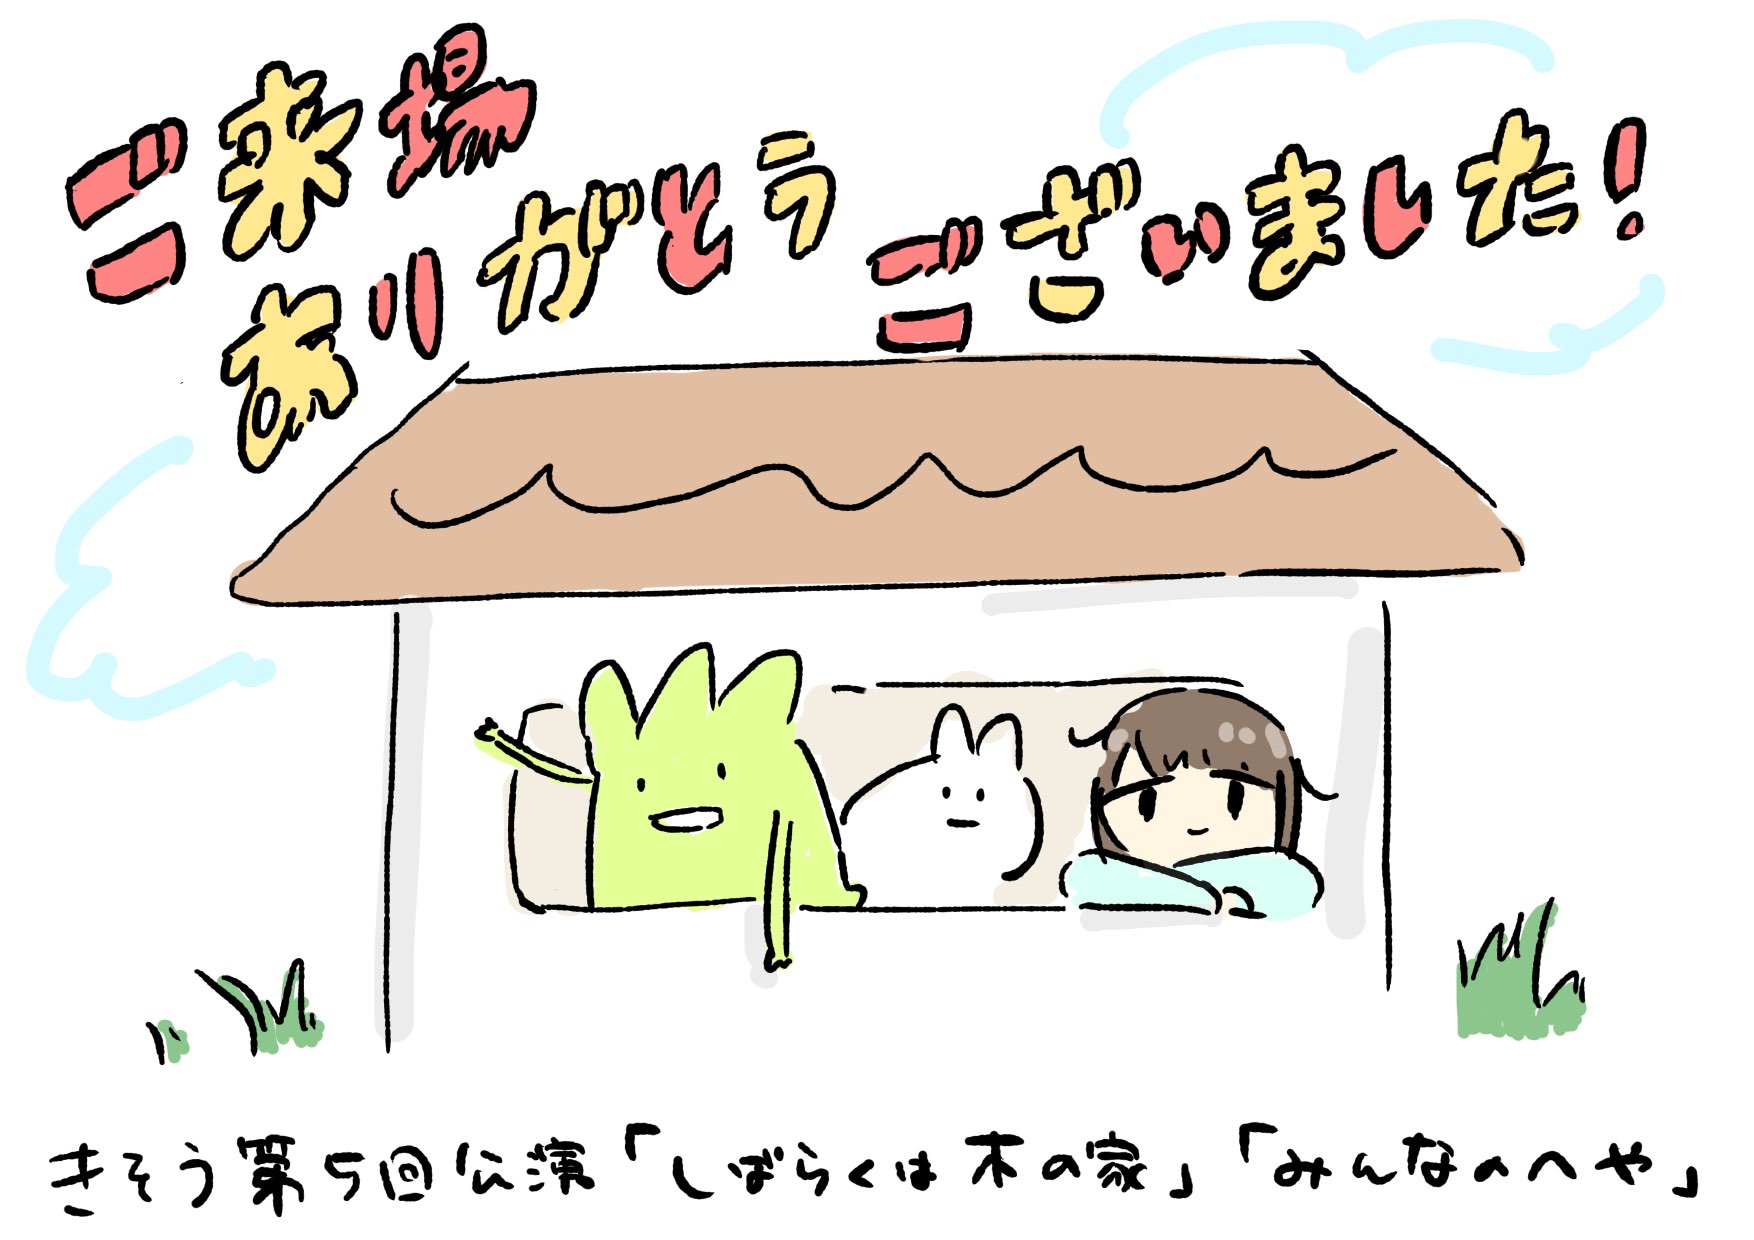 ご来場
ありがとうございました!
きそう第5回公演「しばらくは木の家」「みんなのへや」